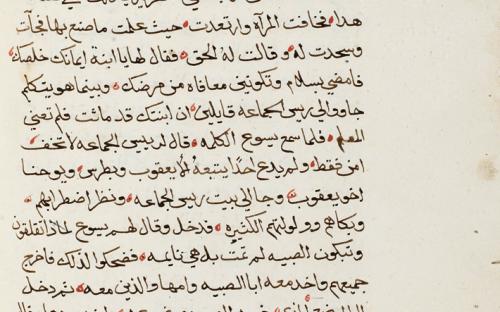 هذا فخافت المرآة وارتعدت حيث علمت ما صنع بها فجآت
وسجدت له وقالت له الحق فقال لها يا ابنة ايمانك خلصك
فامضي بسلام وتكوني معافاه من مرضك وبينما هو يتكلم
جاووا الي ريس الجماعه قايلين ان ابنتك قد ماتت فلم تعني
المعلم فلما سمع يسوع الكلمه قال لرييس الجماعه لا تخف
امن فقط ولم يدع احدًا يتبعه الا يعقوب وبطرس ويوحنا
اخو يعقوب وجا الي بيت رييس الجماعه ونظر اضطرابهم
وبكاهم وولولتهم الكثيره فدخل وقال لهم يسوع لماذا تقلقون
وتبكون الصبيه لم تمت بل هي نايمه فضحكوا لذالك فاخرج
جميعهم واخد معه ابا الصبيه وامها والذين معه ثم دخل